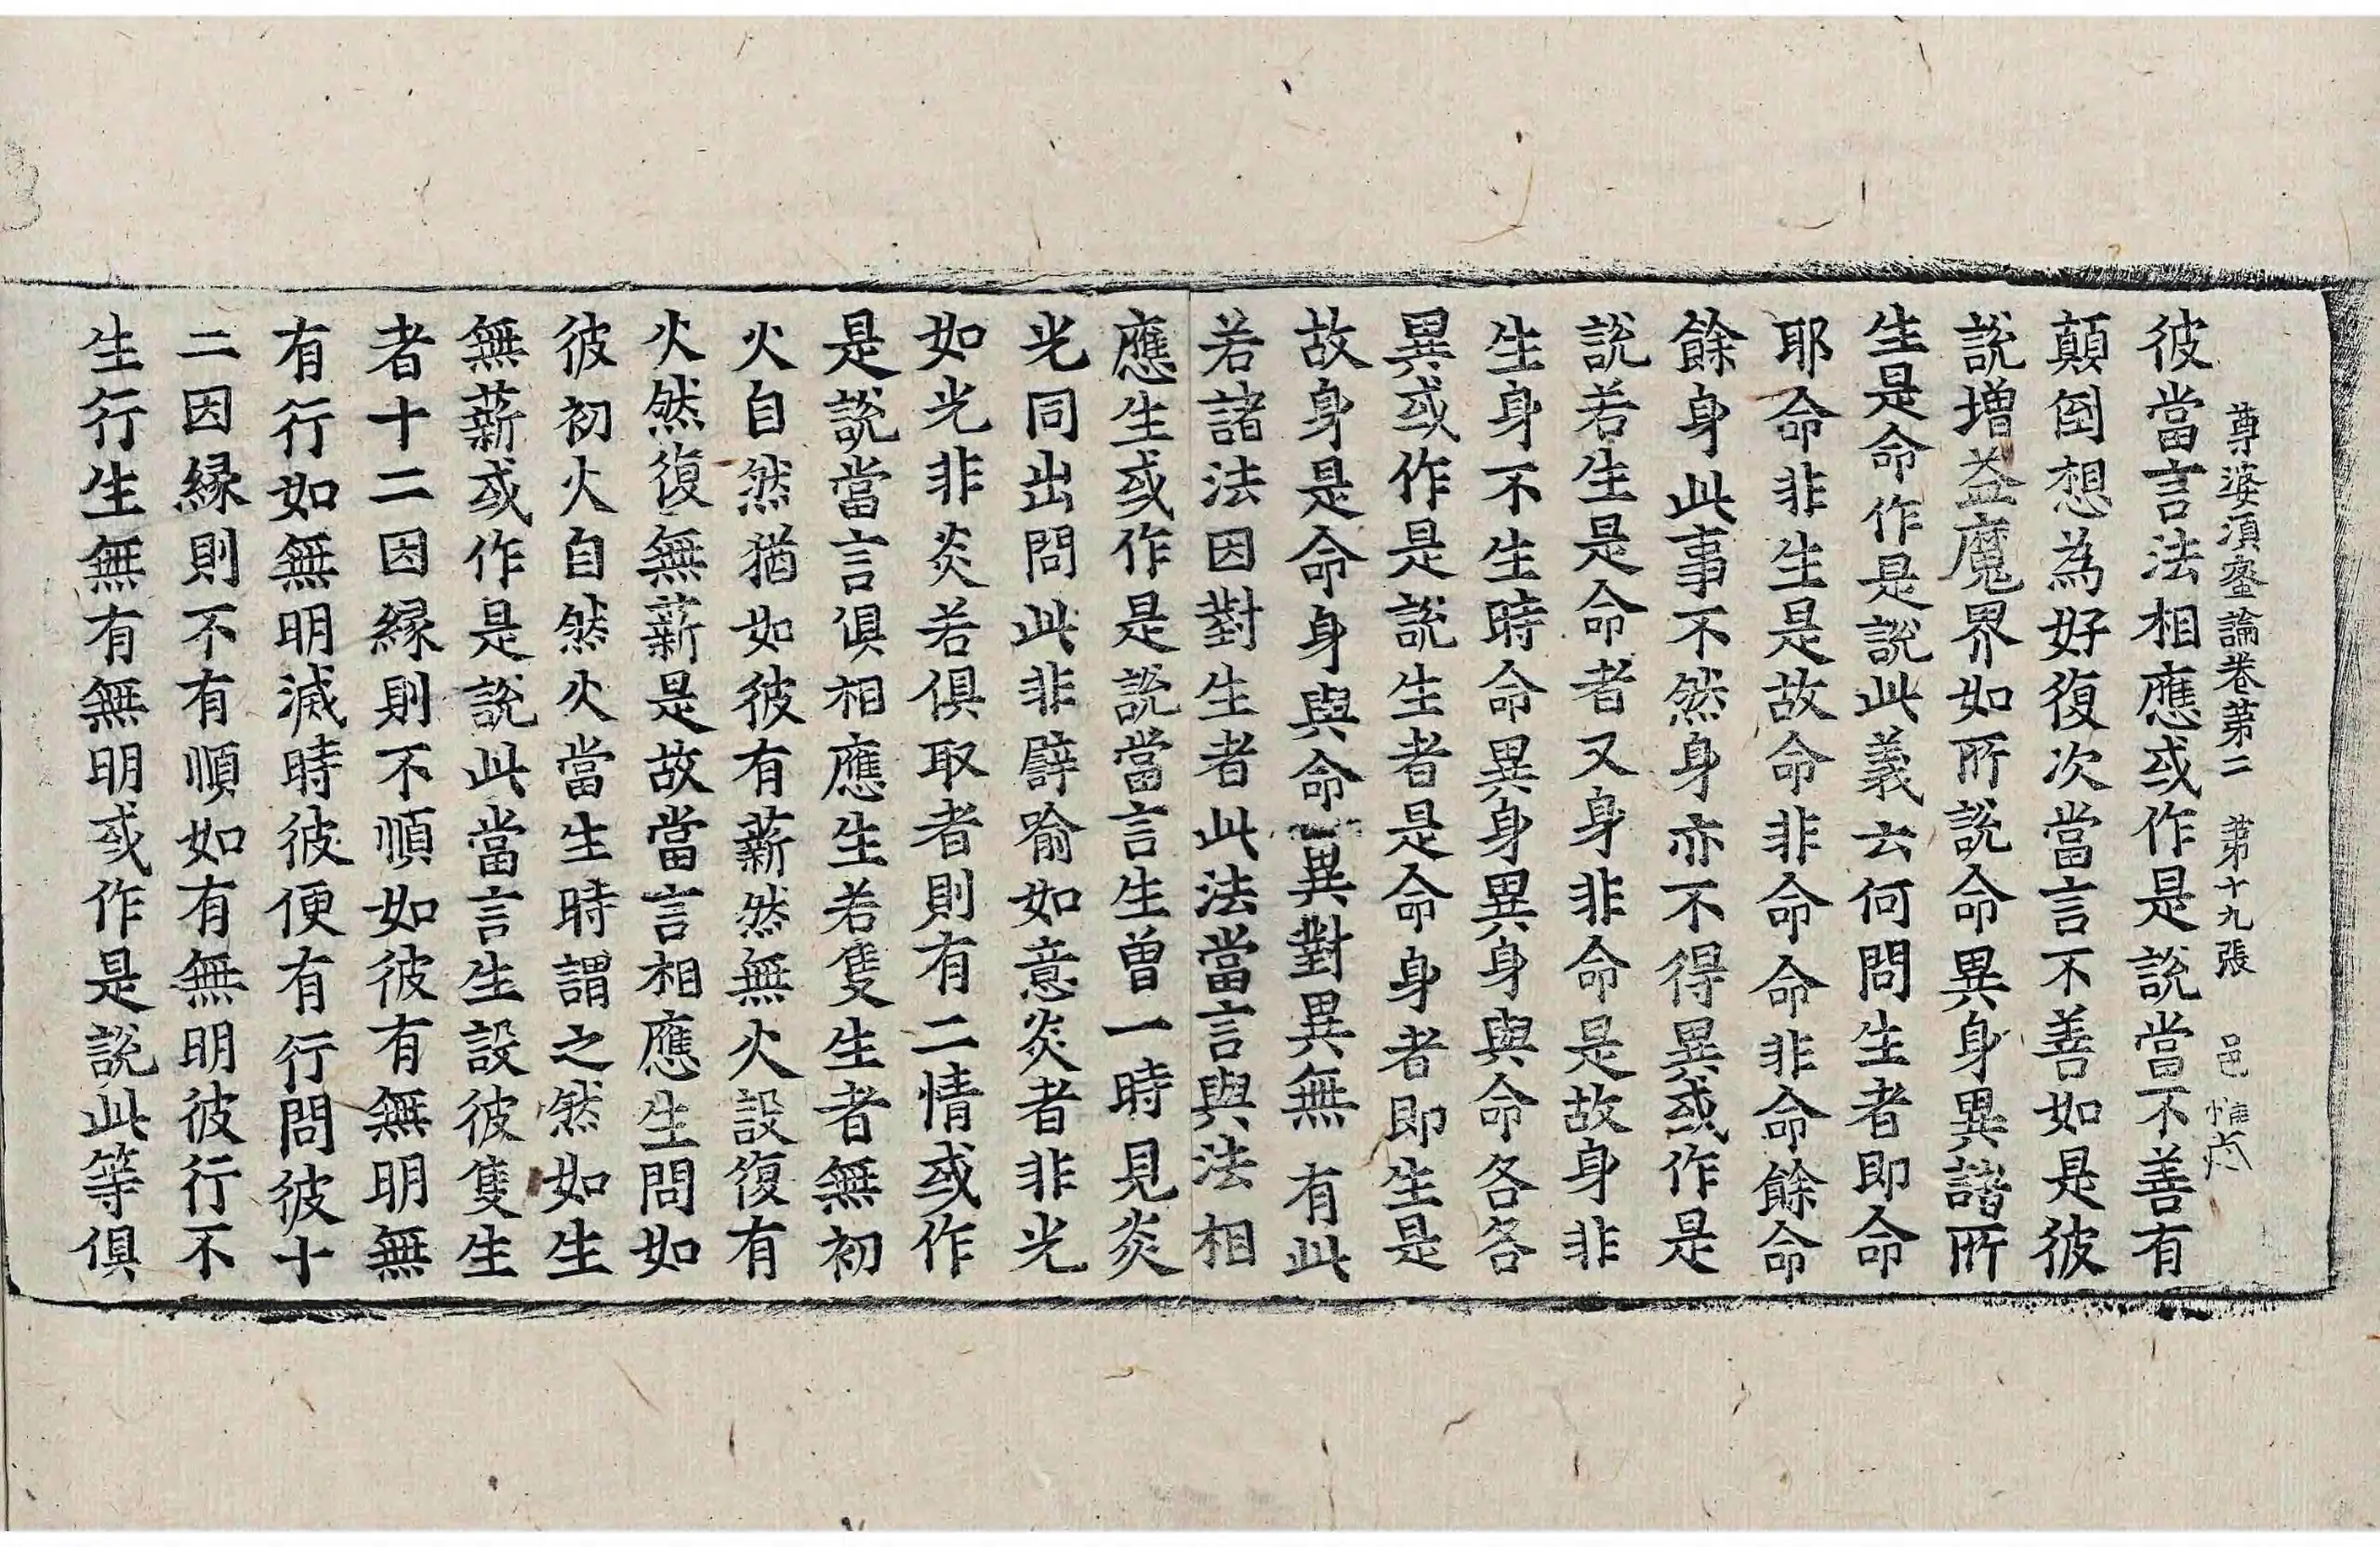 尊婆須蜜論卷第二　第十九張　邑
彼當言法相應或作是說當不善有
顛倒想為好復次當言不善如是彼
說增益魔界如所說命異身異諸所
生是命作是說此義云何問生者即命
耶命非生是故命非命命非命餘命
餘身此事不然身亦不得異或作是
說若生是命者又身非命是故身非
生身不生時命異身異身與命各各
異或作是說生者是命身者即生是
故身是命身與命異對異無有此
若諸法因對生者此法當言與法相
應生或作是說當言生曾一時見炎
光同出問此非譬喻如意炎者非光
如光非炎若俱取者則有二情或作
是說當言俱相應生若隻生者無初
火自然猶如彼有薪然無火設復有
火然復無薪是故當言相應生問如
彼初火自然火當生時謂之然如生
無薪或作是說此當言生設彼隻生
者十二因緣則不順如彼有無明無
有行如無明滅時彼便有行問彼十
二因緣則不有順如有無明彼行不
生行生無有無明或作是說此等俱